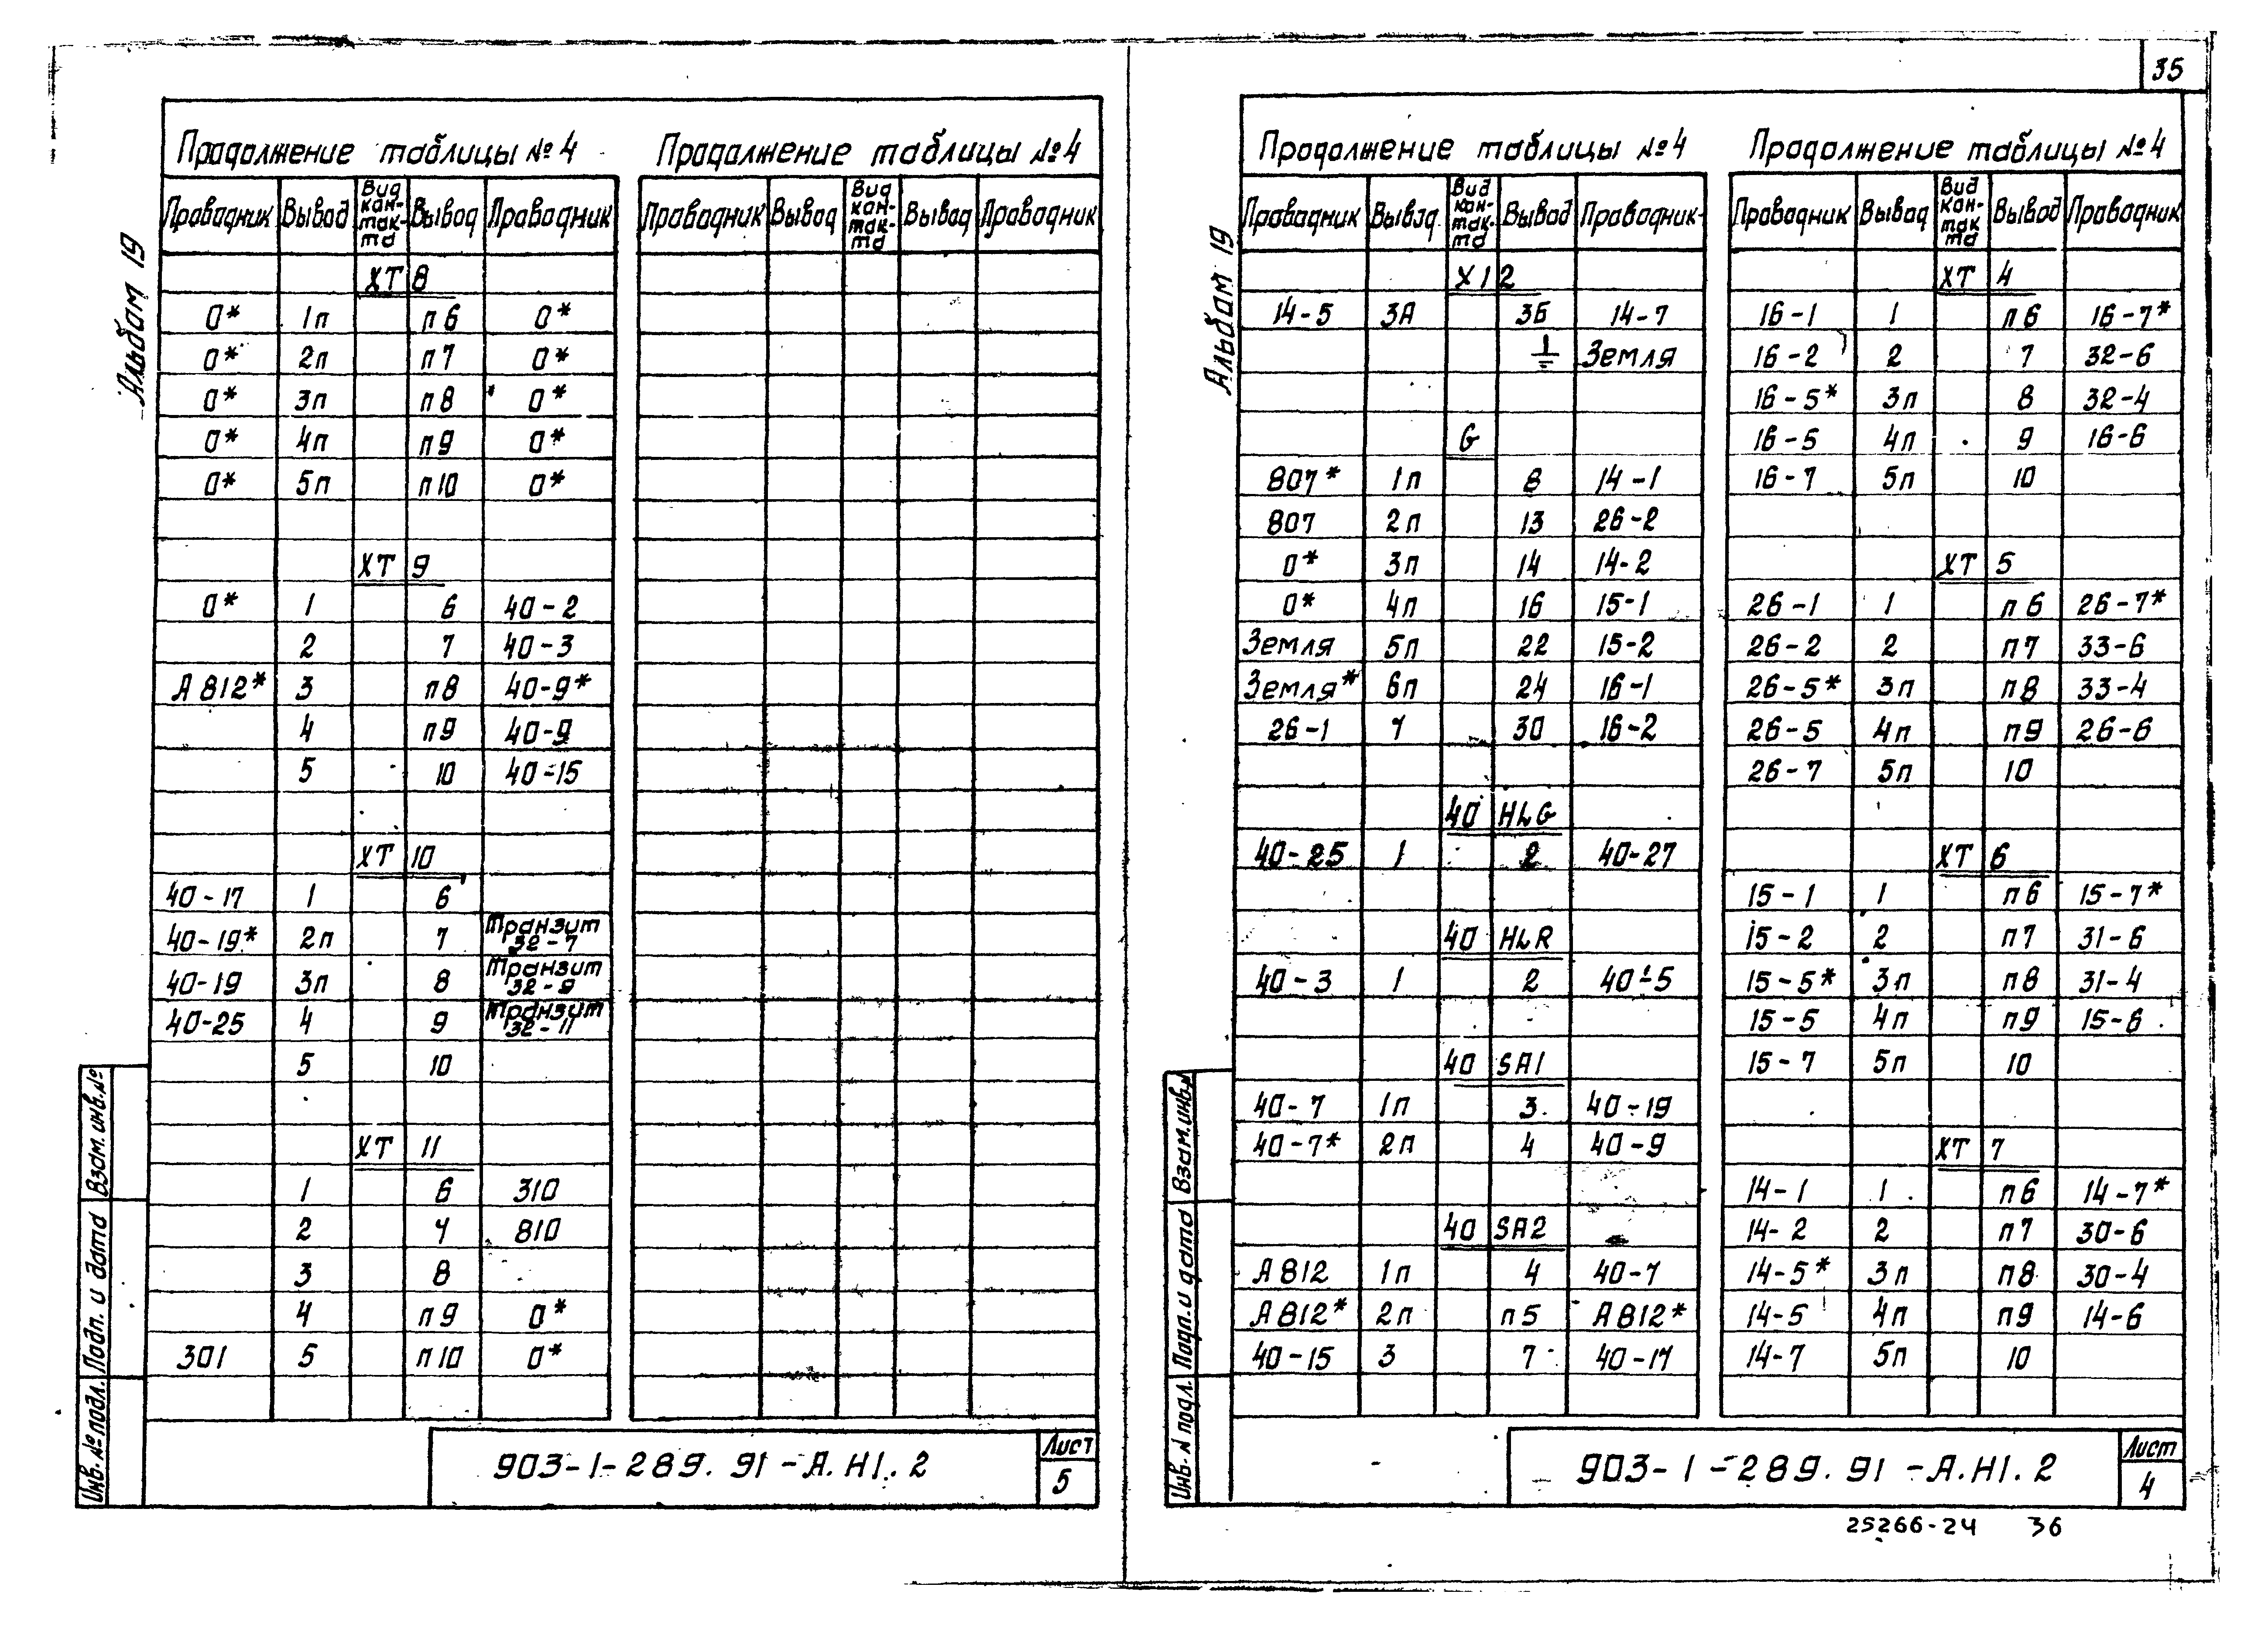 35
Альбом 19
Продолжение таблицы №4
Проводник Вывод Вид кон-так-та Вывод Проводник
ХТ 8
0* 1п п6 0*
0* 2п п7 0*
0* 3п п8 0*
0* 4п п9 0*
0* 5п п10 0*
ХТ 9
0* 1 6 40-2
2 7 40-3
А812* 3 п8 40-9*
4 п9 40-9
5 10 40-15
ХТ 10
40-17 1 6
40-19* 2п 7 Транзит 32-7
40-19 3п 8 Транзит 32-9
40-25 4 9 Транзит 32-11
5 10
ХТ 11
1 6 310
2 7 810
3 8
4 п9 0*
301 5 п10 0*
Продолжение таблицы №4
Проводник Вывод Вид кон-так-та Вывод Проводник
Взам.инв.№
Подп. и дата
Инв.№подл.
903-1-289.91-А.Н1.2
Лист
5
Альбом 19
Продолжение таблицы №4
Проводник Вывод Вид кон-так-та Вывод Проводник
Х12
14-5 3А 3Б 14-7
⏚ Земля
G
807* 1п 8 14-1
807 2п 13 26-2
0* 3п 14 14-2
0* 4п 16 15-1
Земля 5п 22 15-2
Земля* 6п 24 16-1
26-1 7 30 16-2
40 HLG
40-25 1 2 40-27
40 HLR
40-3 1 2 40-5
40 SA1
40-7 1п 3 40-19
40-7* 2п 4 40-9
40 SA2
А812 1п 4 40-7
А812* 2п п5 А812*
40-15 3 7 40-17
Продолжение таблицы №4
Проводник Вывод Вид кон-так та Вывод Проводник
ХТ 4
16-1 1 п6 16-7*
16-2 2 7 32-6
16-5* 3п 8 32-4
16-5 4п 9 16-6
16-7 5п 10
ХТ 5
26-1 1 п6 26-7*
26-2 2 п7 33-6
26-5* 3п п8 33-4
26-5 4п п9 26-6
26-7 5п 10
ХТ 6
15-1 1 п6 15-7*
15-2 2 п7 31-6
15-5* 3п п8 31-4
15-5 4п п9 15-6
15-7 5п 10
ХТ 7
14-1 1 п6 14-7*
14-2 2 п7 30-6
14-5* 3п п8 30-4
14-5 4п п9 14-6
14-7 5п 10
Взам.инв.№
Подп.и дата
Инв.№ подл.
903-1-289.91-А.Н1.2
Лист
4
25266-24 36